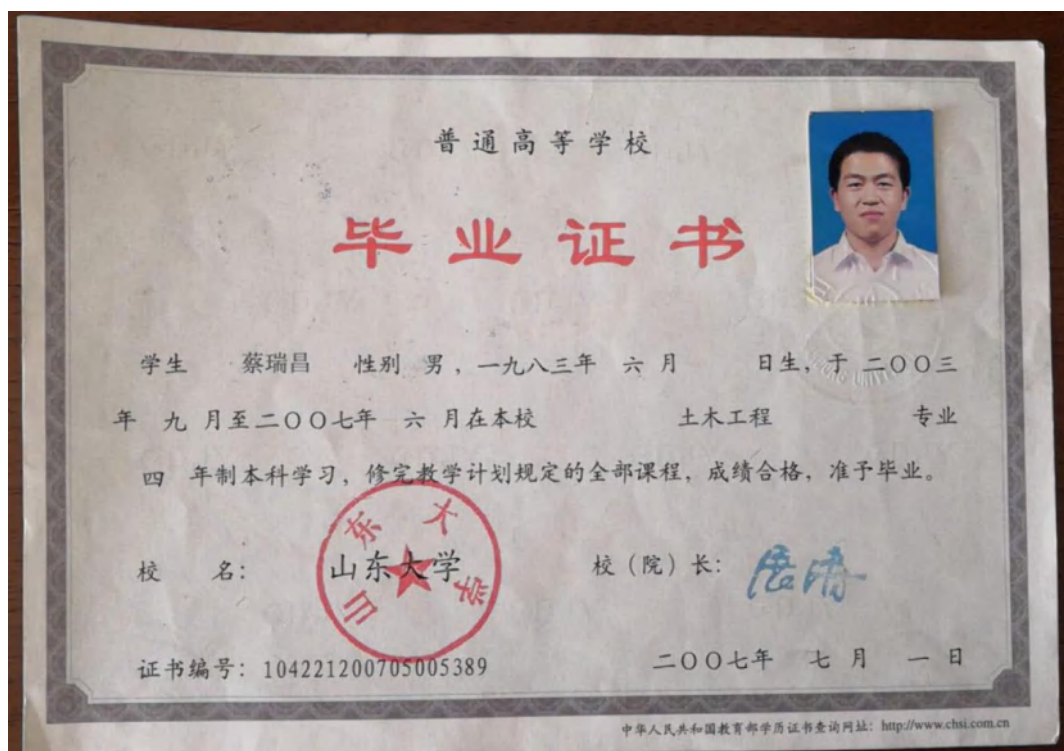 普通高等学校
毕业证书
学生 蔡瑞昌 性别 男，一九八三年 六 月 日生，于 二〇〇三
年 九 月至二〇〇七年 六 月在本校 土木工程 专业
四 年制本科学习，修完教学计划规定的全部课程，成绩合格，准予毕业。
校 名： 山东大学 校（院）长： 展涛
山东大学
证书编号：104221200705005389 二〇〇七年 七 月 一 日
中华人民共和国教育部学历证书查询网址：http://www.chsi.com.cn